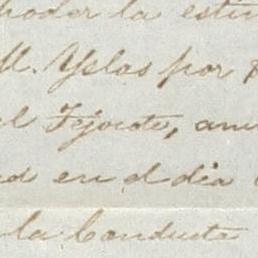 poder la esti
M. Yslas por
el Tejocote, am
ad en el dia
la Conducta